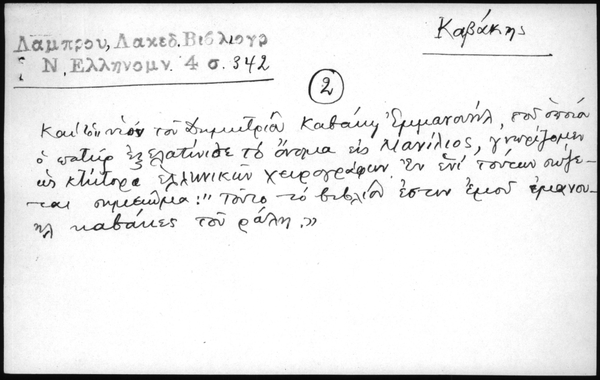 Καβάκης
Λάμπρου, Λακεδ. Βιβλιογρ
Ν. Ελληνομν. 4 σ. 342
2
Και τὸν υἱὸν τοῦ Δημητρίου Καβάκη Ἐμμανουήλ, τοῦ ὁποίου
ὁ πατὴρ ἐξελατίνισε τὸ ὄνομα εἰς Μανίλιος, γνωρίζομεν
ὡς κτήτορα ἑλληνικῶν χειρογράφων. Ἐν ἑνὶ τούτων σώζε-
ται σημείωμα: "Τοῦτο τὸ βιβλίον ἐστιν ἐμοῦ ἐμανου-
ηλ καβάκες τοῦ ράλη."